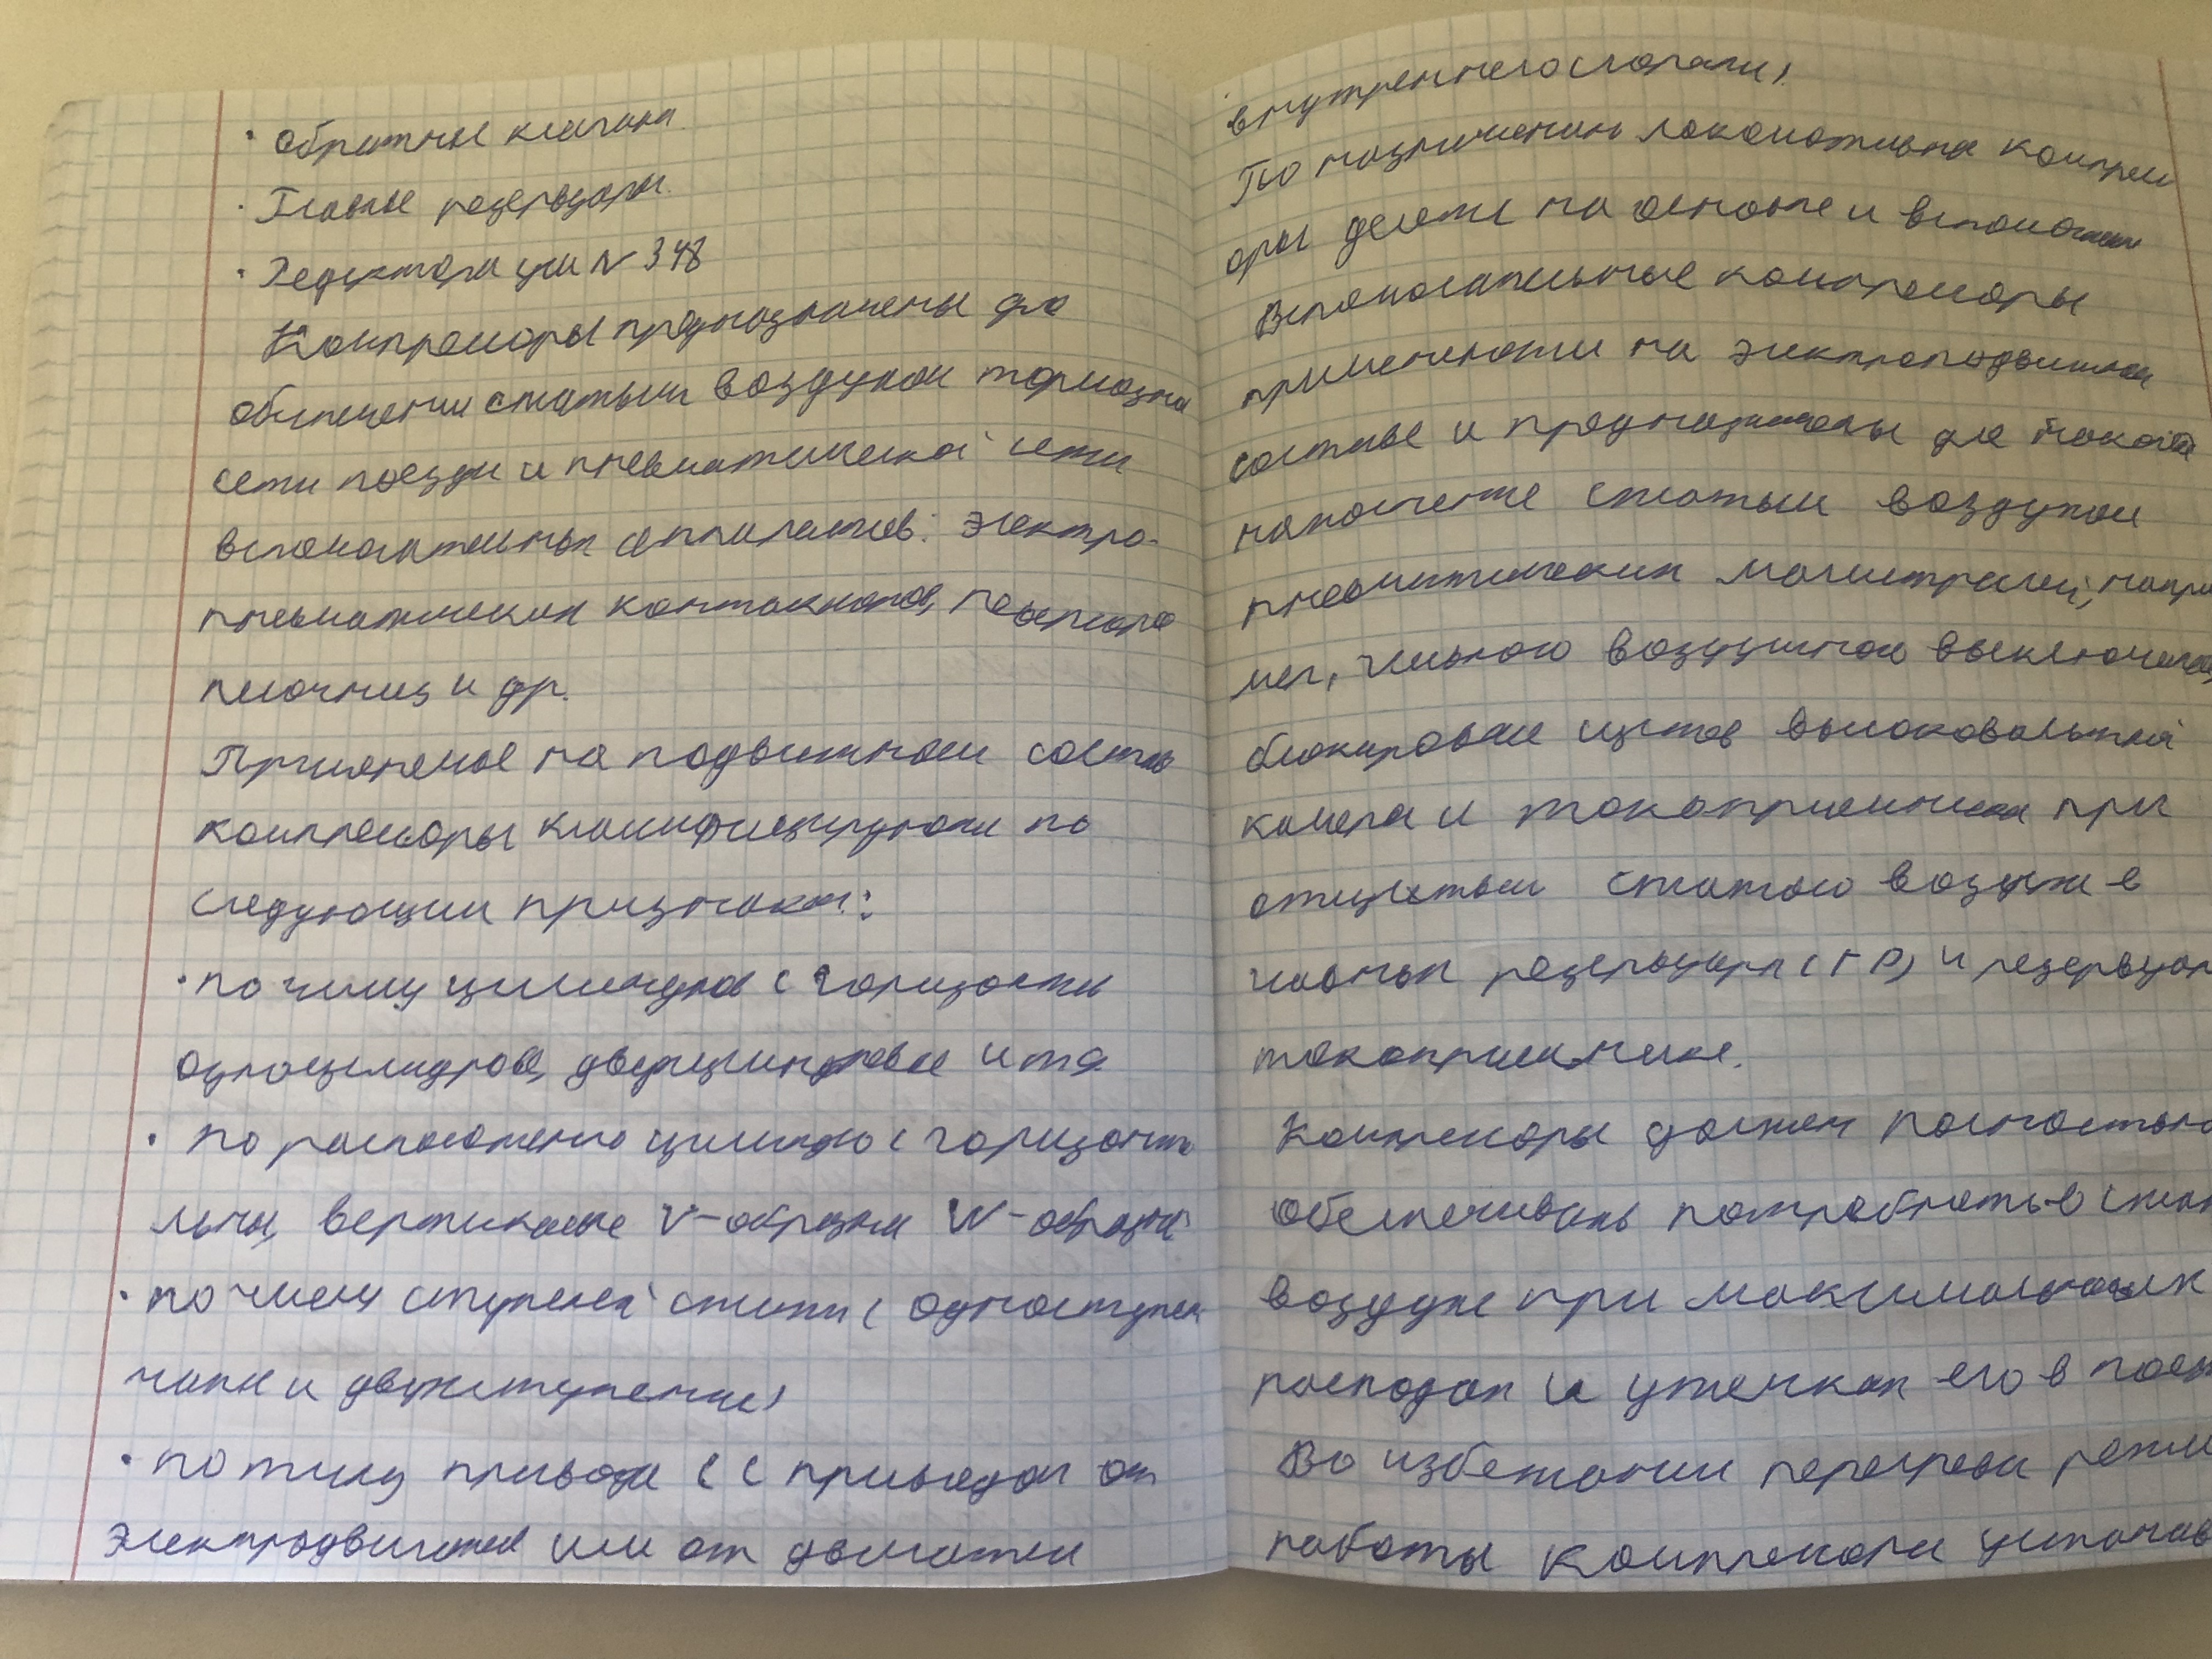 • Обратные клапана.
• Главные резервуары.
• Редуктора усл N 348
Компрессоры предназначены для
обеспечения сжатым воздухом тормозной
сети поезда и пневматической сети
вспомогательных аппаратов: электро-
пневматических контакторов,
песочниц и др.
Применяемые на подвижном составе
компрессоры классифицируются по
следующим признакам:
• по числу цилиндров (
одноцилиндровые, двухцилиндровые и т.д
• по расположению цилиндров ( горизонта
льные, вертикальные V-образные W-образные
• по числу ступеней сжатия ( одноступен
чатые и двухступенчатые)
• по типу привода ( с приводом от
электродвигателя или от двигателя
внутреннего сгорания)
По назначению локомотивные компресс
оры делятся на основные и вспомогательные
Вспомогательные компрессоры
применяются на электроподвижном
составе и предназначены для
наполнения сжатым воздухом
пневматических магистралей, напри
мер, главного воздушного выключателя,
блокирования щитов высоковольтной
камеры и токоприемника при
отсутствии сжатого воздуха в
главных резервуарах (ГР) и резервуаре
токоприемника.
Компрессоры должен полностью
обеспечивать потребность в сжат
воздухе при максимальных
расходах и утечках его в поезде
Во избежании перегрева режим
работы компрессора устанав